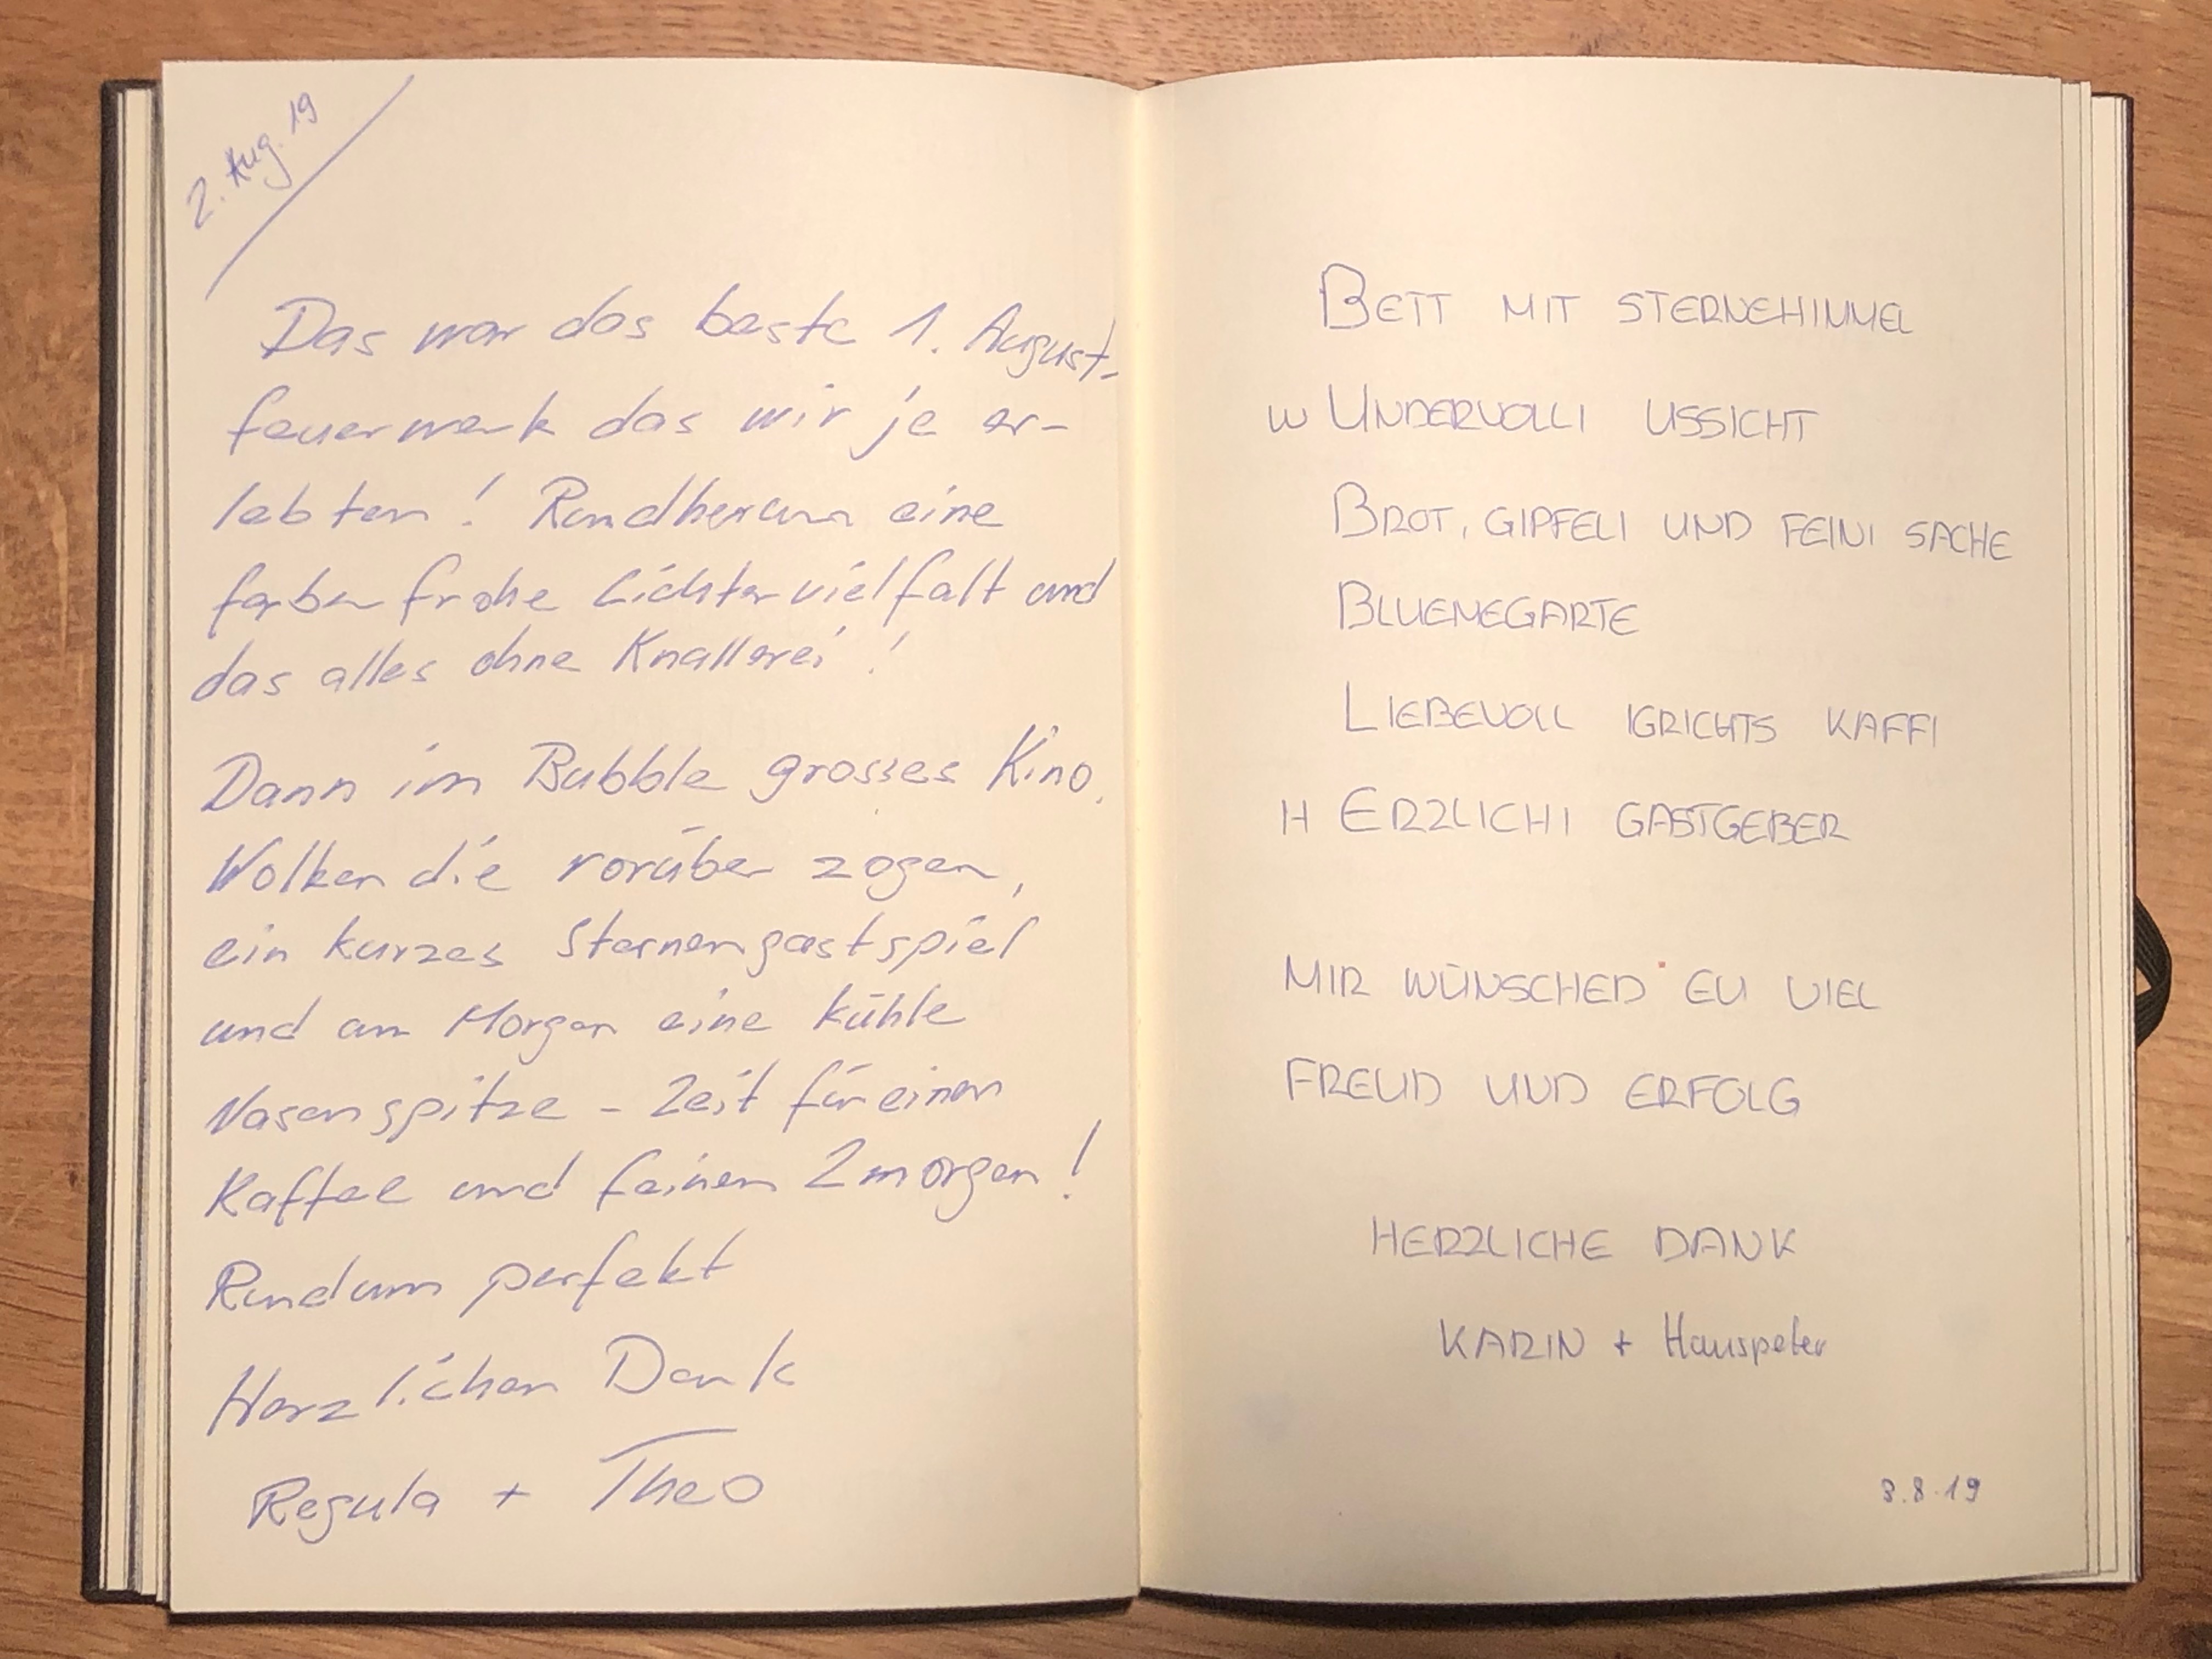 2. Aug. 19
Das war das beste 1. August-
feuerwerk das wir je er-
lebten! Rundherum eine
farbenfrohe Lichtervielfalt und
das alles ohne Knallerei!
Dann im Bubble grosses Kino.
Wolken die vorüber zogen,
ein kurzes Sternengastspiel
und am Morgen eine kühle
Nasenspitze - Zeit für einen
Kaffee und feinen Zmorgen!
Rundum perfekt
Herzlichen Dank
Regula + Theo
BETT MIT STERNEHIMMEL
W UNDERVOLLI USSICHT
BROT, GIPFELI UND FEINI SACHE
BLUEMEGARTE
LIEBEVOLL IGRICHTS KAFFI
H ERZLICHI GASTGEBER
MIR WÜNSCHED EU VIEL
FREUD UND ERFOLG
HERZLICHE DANK
KARIN + Hanspeter
3.8.19